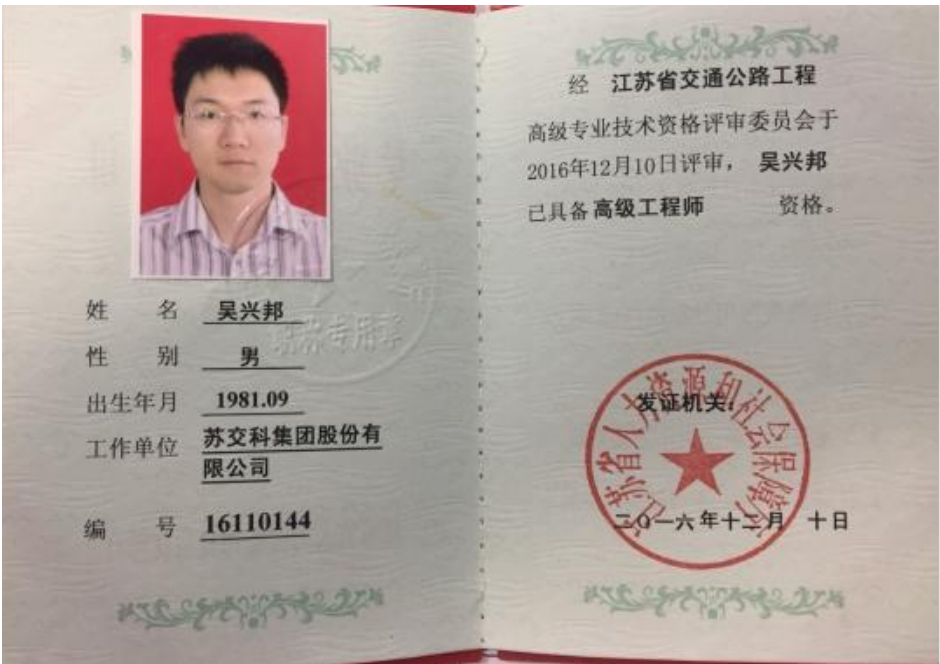 姓 名 吴兴邦
性 别 男
出生年月 1981.09
工作单位 苏交科集团股份有
限公司
编 号 16110144
职称专用章
经 江苏省交通公路工程
高级专业技术资格评审委员会于
2016年12月10日评审， 吴兴邦
已具备 高级工程师 资格。
江苏省人力资源和社会保障厅
发证机关：
二〇一六年十二月 十日